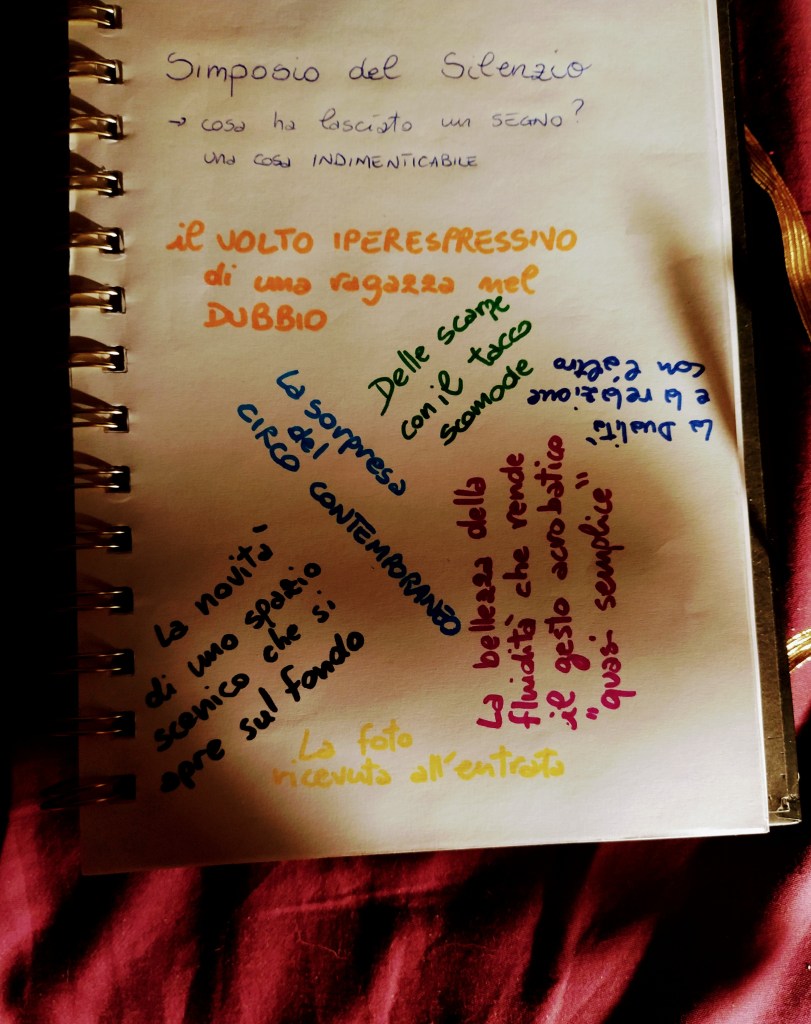 Simposio del Silenzio
→ cosa ha lasciato un SEGNO?
una cosa INDIMENTICABILE
il VOLTO IPERESPRESSIVO
di una ragazza nel
DUBBIO
Delle scarpe
con il tacco
scomode
La Dualità
e la relazione
con l'altro
La sorpresa
del
CIRCO CONTEMPORANEO
La bellezza della
fluidità che rende
il gesto acrobatico
"quasi semplice"
La novità
di uno spazio
scenico che si
apre sul fondo
La foto
ricevuta all'entrata